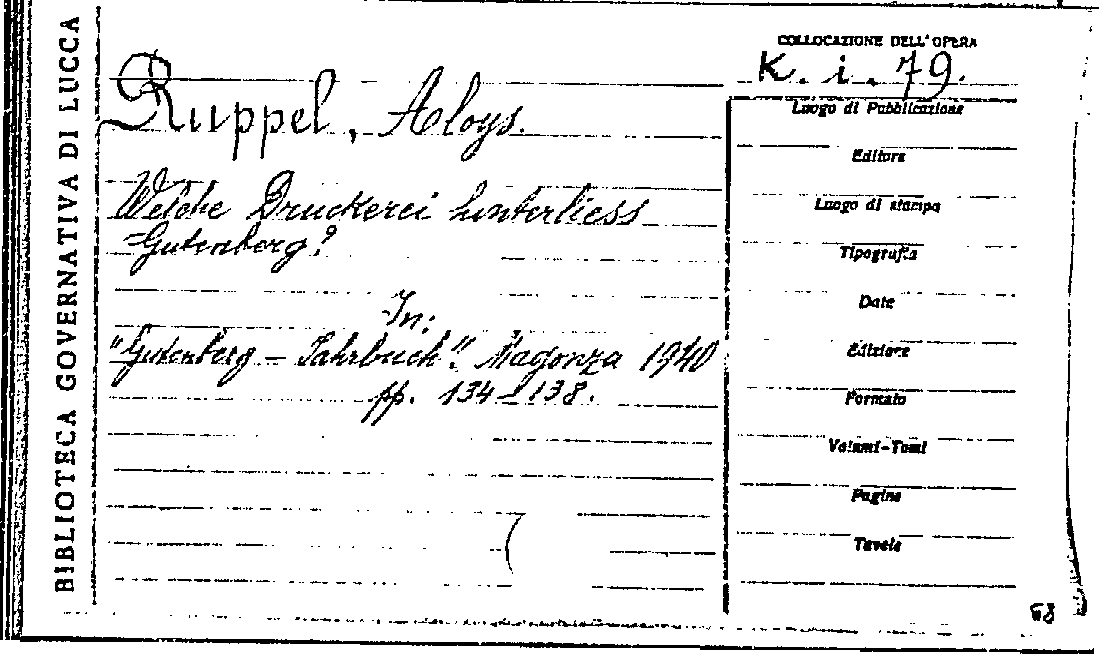 BIBLIOTECA GOVERNATIVA DI LUCCA
COLLOCAZIONE DELL'OPERA
K. i. 79.
Ruppel, Aloys.
Welche Druckerei hinterliess
Gutenberg?
In:
"Gutenberg - Jahrbuch". Magonza 1940
pp. 134-138.
Luogo di Pubblicazione
Editore
Luogo di stampa
Tipografia
Date
Edizione
Formato
Volumi-Tomi
Pagine
Tavole